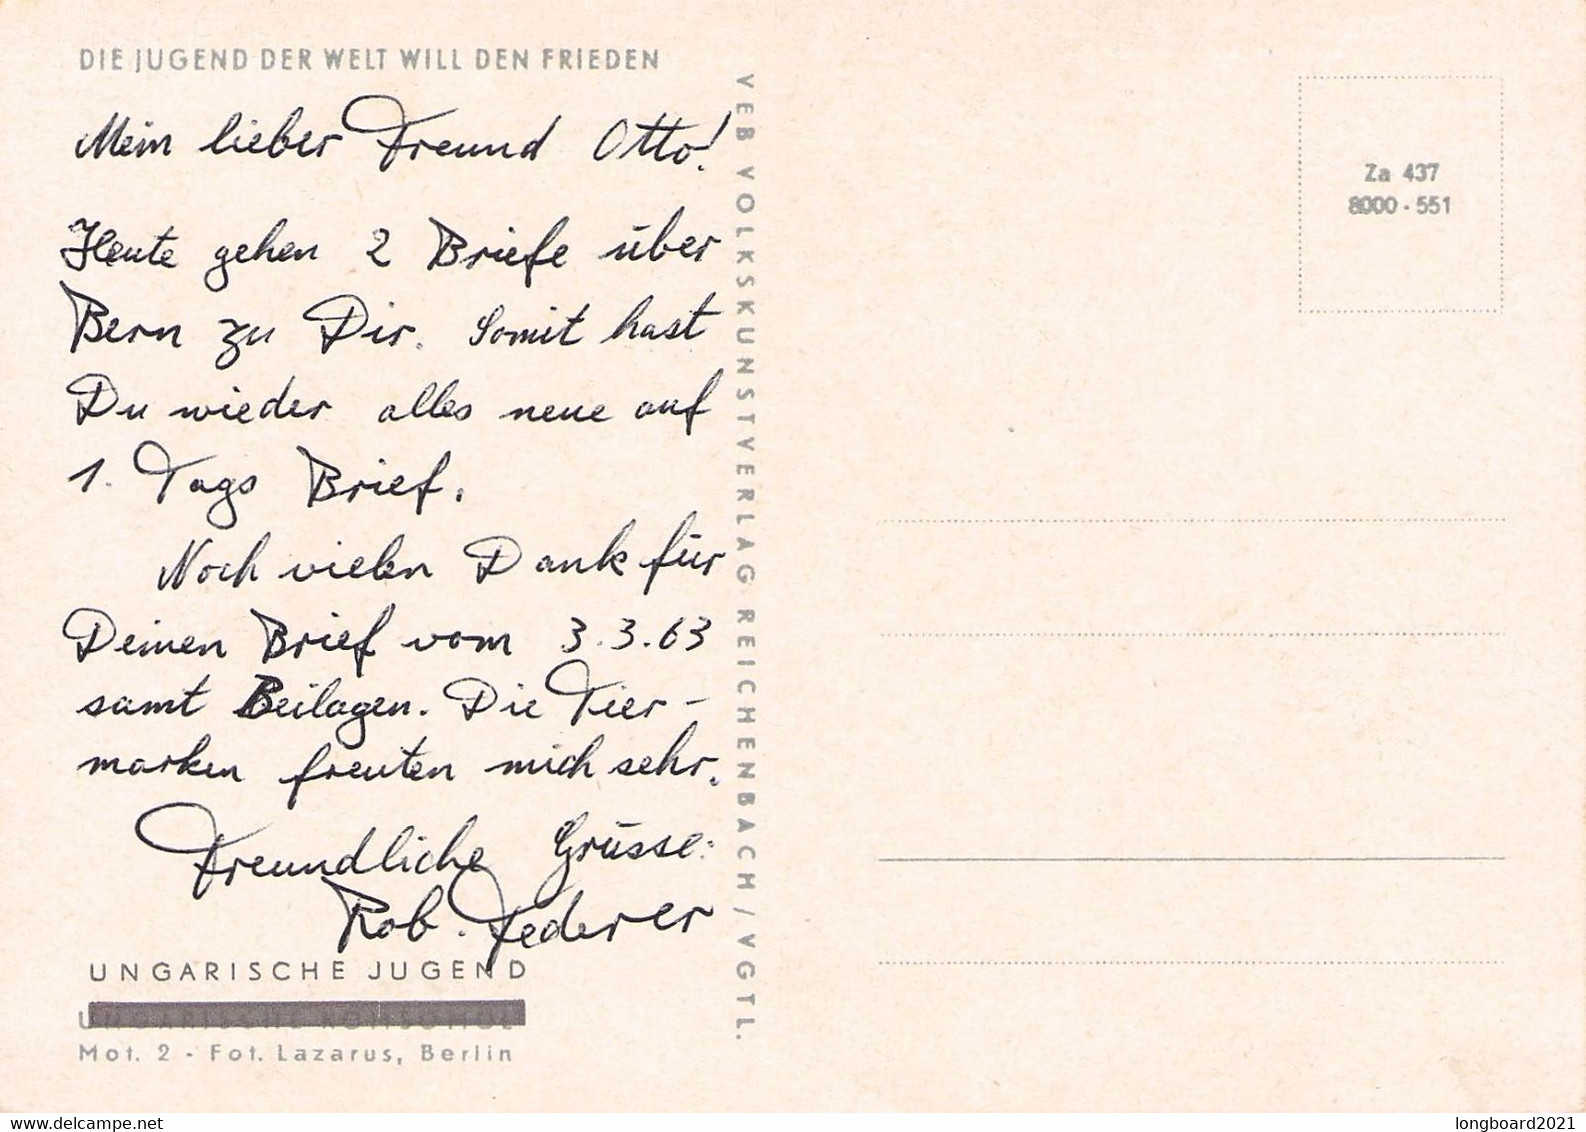 DIE JUGEND DER WELT WILL DEN FRIEDEN
Mein lieber Freund Otto!
Heute gehen 2 Briefe über
Bern zu Dir. Somit hast
Du wieder alles neue auf
1. Tags Brief.
Noch vielen Dank für
Deinen Brief vom 3.3.63
samt Beilagen. Die Tier-
marken freuten mich sehr.
Freundliche Grüsse:
Rob. Federer
UNGARISCHE JUGEND
Mot. 2 - Fot. Lazarus, Berlin
VEB VOLKSKUNSTVERLAG REICHENBACH / VGTL.
Za 437
8000 - 551
delcampe.net
longboard2021